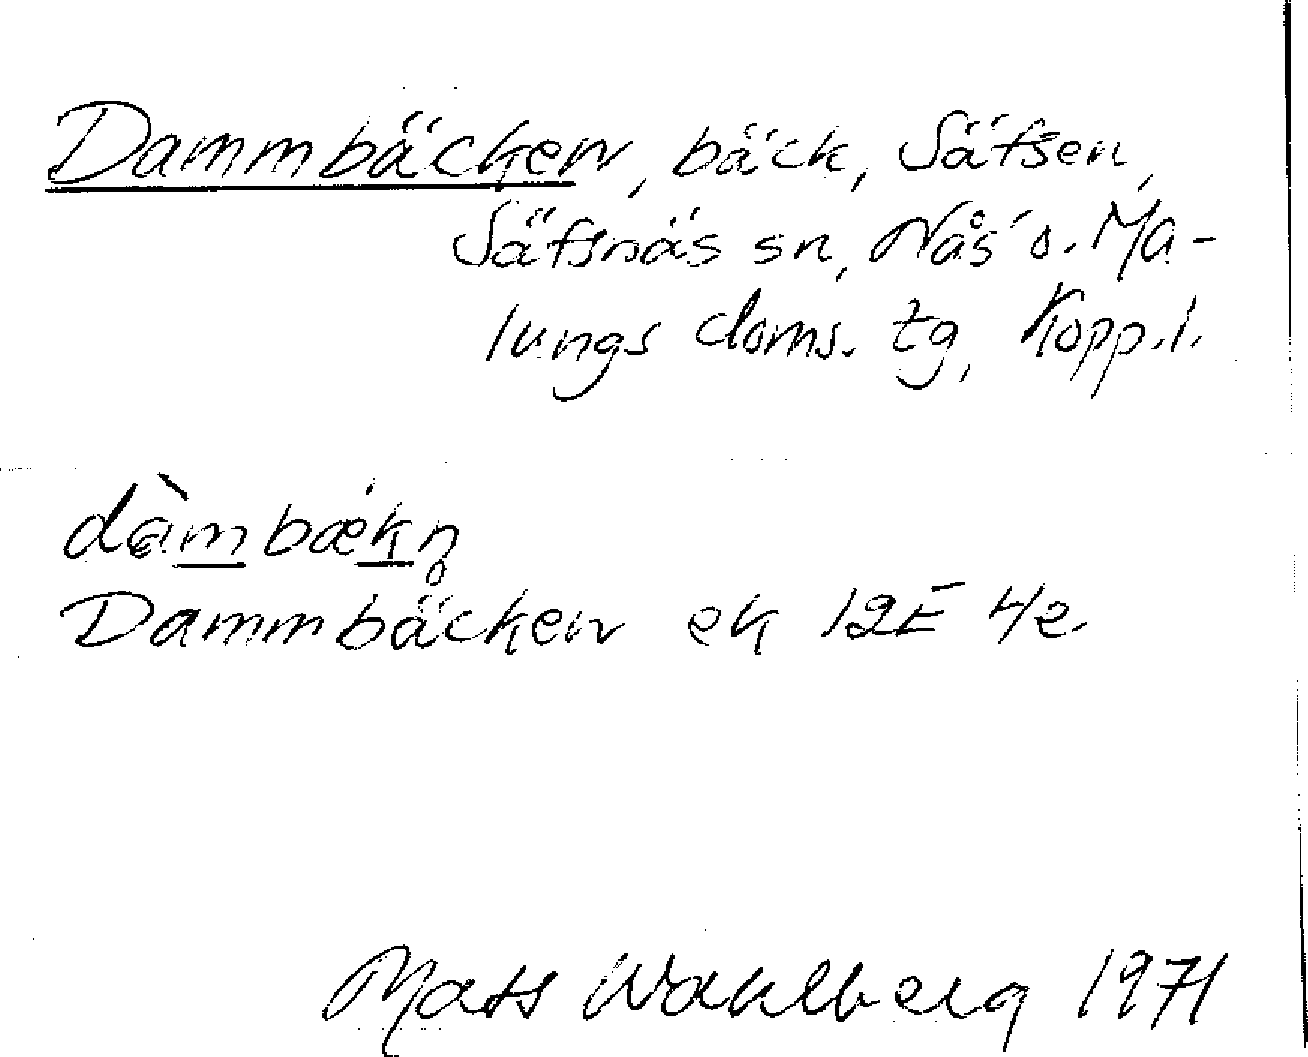 Dammbäcken, bäck, Säfsen,
Säfsnäs sn, Nås' o. Ma-
lungs doms. tg, Kopp. l.
dàmbækn̥
Dammbäcken ek 12E 4e
Mats Wahlberg 1971